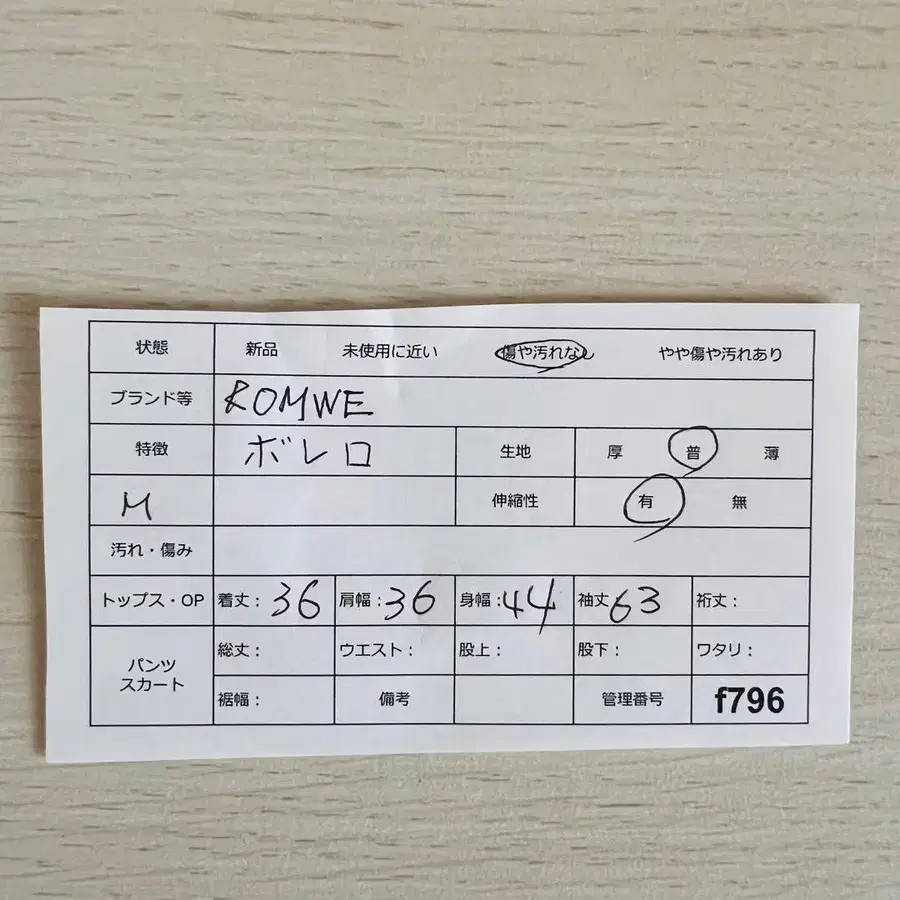 状態 新品 未使用に近い 傷や汚れなし やや傷や汚れあり
ブランド等 ROMWE
特徴 ボレロ 生地 厚 普 薄
M 伸縮性 有 無
汚れ・傷み
トップス・OP 着丈：36 肩幅：36 身幅：44 袖丈63 裄丈：
パンツ
スカート
総丈： ウエスト： 股上： 股下： ワタリ：
裾幅： 備考 管理番号 f796